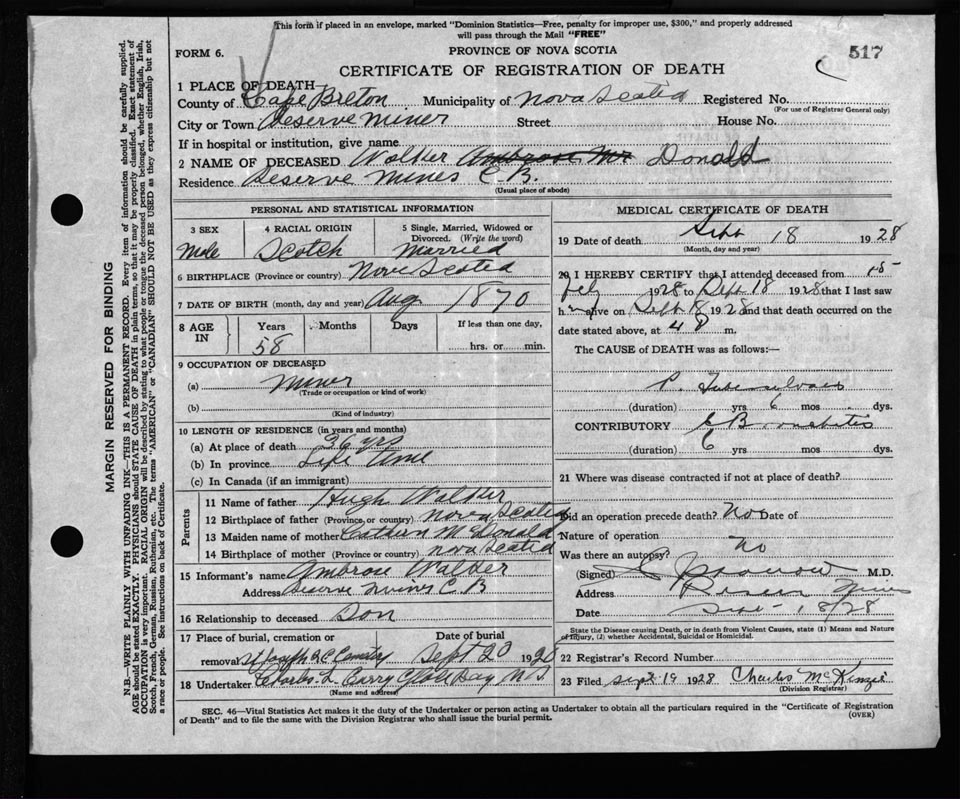 This form if placed in an envelope, marked "Dominion Statistics—Free, penalty for improper use, $300," and properly addressed
will pass through the Mail "FREE"
FORM 6.
PROVINCE OF NOVA SCOTIA
517
CERTIFICATE OF REGISTRATION OF DEATH
1 PLACE OF DEATH—
County of Cape Breton Municipality of Nova Scotia Registered No.
(For use of Registrar General only)
City or Town Reserve Mines Street House No.
If in hospital or institution, give name
2 NAME OF DECEASED Walker Ambrose Mr Donald
Residence Reserve Mines C.B.
(Usual place of abode)
PERSONAL AND STATISTICAL INFORMATION
3 SEX
Male
4 RACIAL ORIGIN
Scotch
5 Single, Married, Widowed or
Divorced. (Write the word)
Married
6 BIRTHPLACE (Province or country) Nova Scotia
7 DATE OF BIRTH (month, day and year) Aug 1870
8 AGE IN
Years Months Days If less than one day,
58 hrs. or min.
9 OCCUPATION OF DECEASED
(a) Miner
(Trade or occupation or kind of work)
(b)
(Kind of industry)
10 LENGTH OF RESIDENCE (in years and months)
(a) At place of death 36 yrs
(b) In province Life time
(c) In Canada (if an immigrant)
Parents
11 Name of father Hugh Walker
12 Birthplace of father (Province or country) Nova Scotia
13 Maiden name of mother McDonald
14 Birthplace of mother (Province or country) Nova Scotia
15 Informant's name Ambrose Walker
Address Reserve Mines C B
16 Relationship to deceased Son
17 Place of burial, cremation or Date of burial
removal St Joseph R.C. Cemetery Sept 20 1928
18 Undertaker Charles L Curry Glace Bay N.S.
(Name and address)
MEDICAL CERTIFICATE OF DEATH
19 Date of death Sept 18 1928
(Month, day and year)
20 I HEREBY CERTIFY that I attended deceased from 15
1928 to Sept 18 1928 that I last saw
him alive on Sept 18 1928 and that death occurred on the
date stated above, at 4 P m.
The CAUSE of DEATH was as follows:—
P. Tuberculosis
(duration) yrs 6 mos dys.
CONTRIBUTORY C Bronchitis
(duration) 6 yrs mos dys.
21 Where was disease contracted if not at place of death?
Did an operation precede death? No Date of
Nature of operation
Was there an autopsy? No
(Signed) M.D.
Address Reserve Mines
Date Sept 18/28
State the Disease causing Death, or in death from Violent Causes, state (1) Means and Nature
of Injury, (2) whether Accidental, Suicidal or Homicidal.
22 Registrar's Record Number
23 Filed Sept 19 1928 Charles McKenzie
(Division Registrar)
SEC. 46—Vital Statistics Act makes it the duty of the Undertaker or person acting as Undertaker to obtain all the particulars required in the "Certificate of Registration
of Death" and to file the same with the Division Registrar who shall issue the burial permit.
(OVER)
MARGIN RESERVED FOR BINDING
N.B.—WRITE PLAINLY WITH UNFADING INK—THIS IS A PERMANENT RECORD. Every item of information should be carefully supplied.
AGE should be stated EXACTLY. PHYSICIANS should STATE CAUSE OF DEATH in plain terms, so that it may be properly classified. Exact statement of
OCCUPATION is very important. RACIAL ORIGIN will be described by stating to what people or tongue the deceased person belonged, whether English, Irish,
Scotch, French, German, Russian, Ruthenian, etc. The terms "AMERICAN" or "CANADIAN" SHOULD NOT BE USED as they express citizenship but not
a race or people. See instructions on back of Certificate.